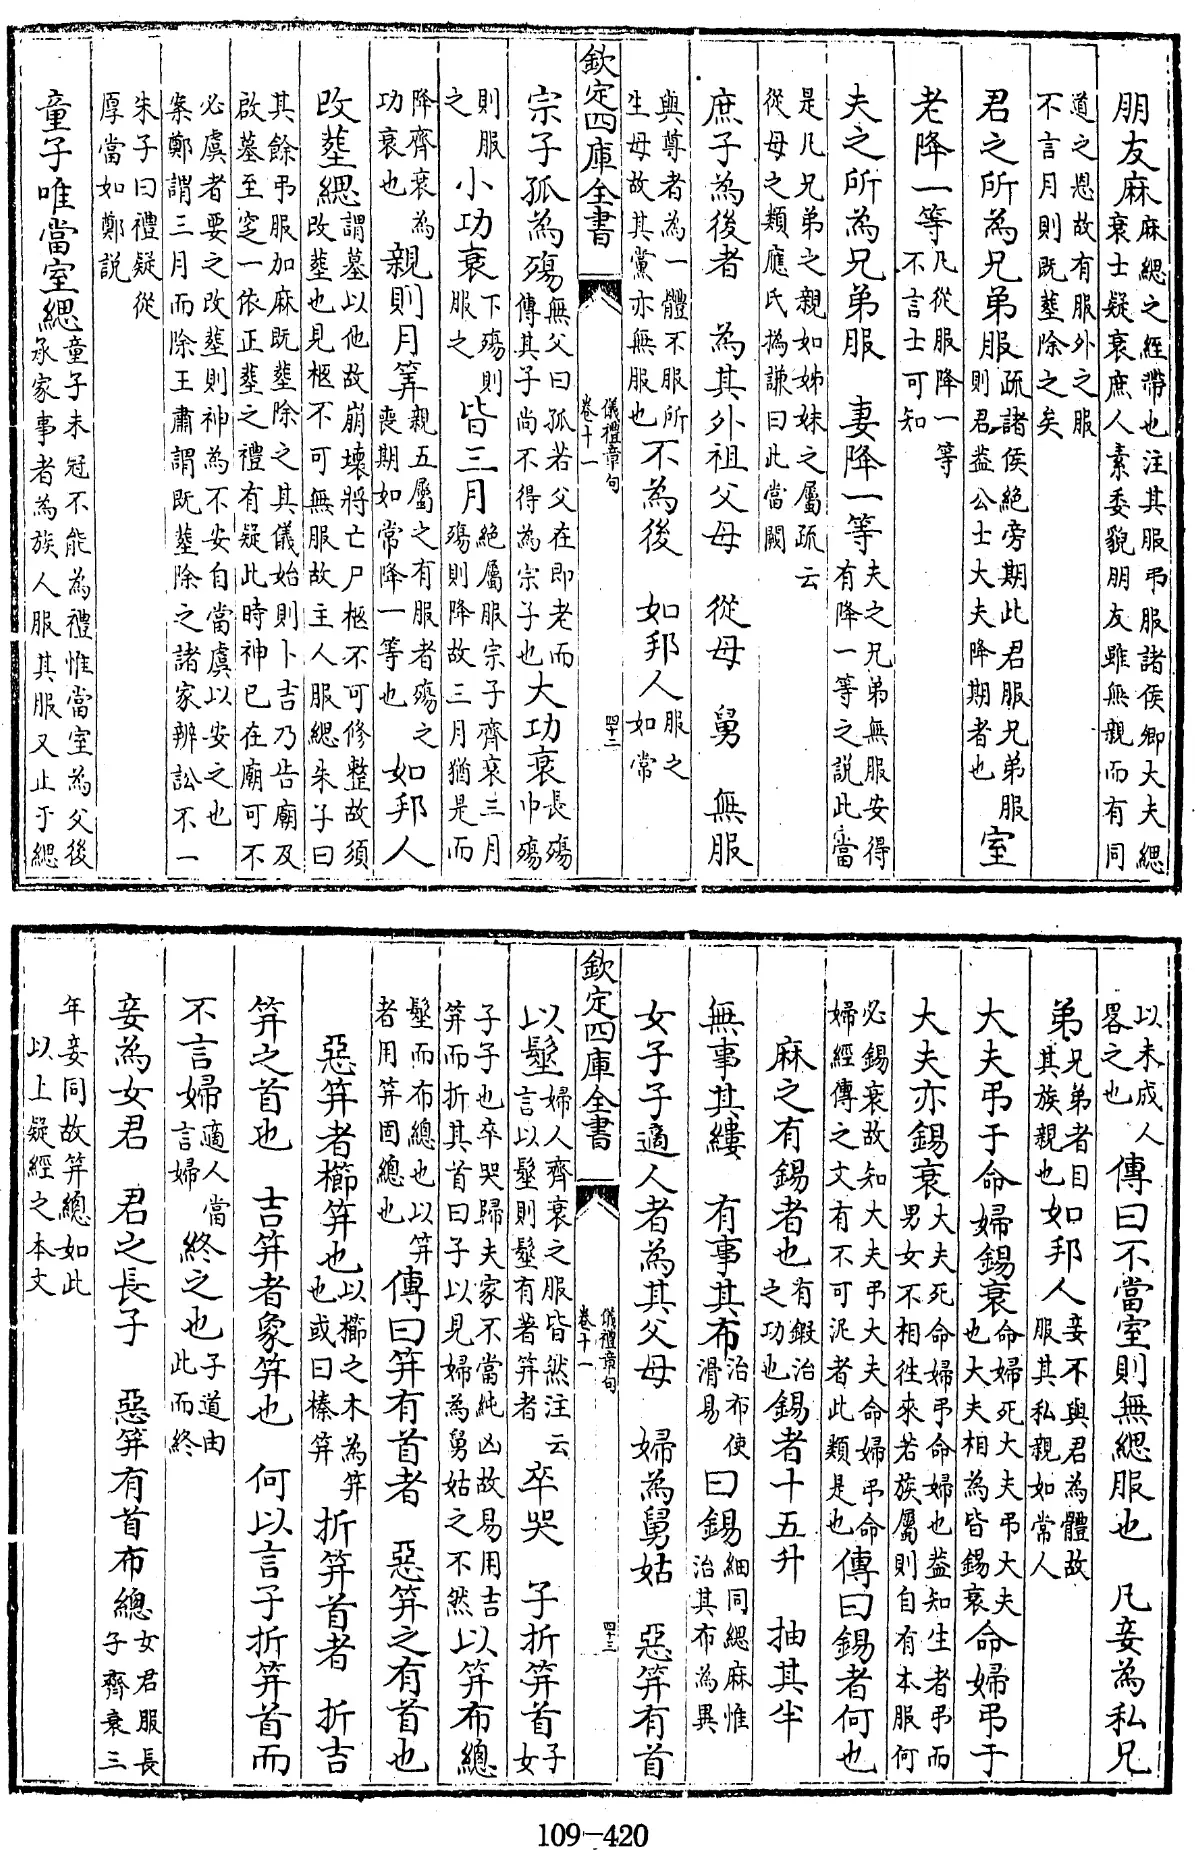 朋友麻麻緦之絰帶也注其服弔服諸侯卿大夫緦衰士疑衰庶人素委貌朋友雖無親而有同
道之恩故有服外之服不言月則既塟除之矣
君之所為兄弟服疏諸侯絶旁期此君服兄弟服則君盖公士大夫降期者也室
老降一等凡從服降一等不言士可知
夫之所為兄弟服　妻降一等夫之兄弟無服安得有降一等之説此當
是凡兄弟之親如姊妹之屬疏云從母之類應氏撝謙曰此當闕
庶子為後者　為其外祖父母　從母　舅　無服
與尊者為一體不服所生母故其黨亦無服也不為後　如邦人服之如常
欽定四庫全書　儀禮章句卷十一　四十二
宗子孤為殤無父曰孤若父在即老而傳其子尚不得為宗子也大功衰長殤中殤
則服之小功衰下殤則服之皆三月絶屬服宗子齊衰三月殤則降故三月猶是而
降齊衰為功衰也親則月筭親五屬之有服者殤之喪期如常降一等也如邦人
改塟緦謂墓以他故崩壞將亡尸柩不可修整故須改塟也見柩不可無服故主人服緦朱子曰
其餘弔服加麻既塟除之其儀始則卜吉乃告廟及啟墓至窆一依正塟之禮有疑此時神已在廟可不
必虞者要之改塟則神為不安自當虞以安之也案鄭謂三月而除王肅謂既塟除之諸家辨訟不一
朱子曰禮疑從厚當如鄭説
童子唯當室緦童子未冠不能為禮惟當室為父後承家事者為族人服其服又止于緦
以未成人畧之也傳曰不當室則無緦服也　凡妾為私兄
弟兄弟者目其族親也如邦人妾不與君為體故服其私親如常人
大夫弔于命婦錫衰命婦死大夫弔大夫也大夫相為皆錫衰命婦弔于
大夫亦錫衰大夫死命婦弔命婦也盖知生者弔而男女不相徃來若族屬則自有本服何
必錫衰故知大夫弔大夫命婦弔命婦經傳之文有不可泥者此類是也傳曰錫者何也
麻之有錫者也有鍛治之功也錫者十五升　抽其半
無事其縷　有事其布治布使滑易曰錫細同緦麻惟治其布為異
女子子適人者為其父母　婦為舅姑　惡筓有首
欽定四庫全書　儀禮章句卷十一　四十三
以髽婦人齊衰之服皆然注云言以髽則髽有著筓者卒哭　子折筓首子女
子子也卒哭歸夫家不當純凶故易用吉筓而折其首曰子以見婦為舅姑之不然以筓布總
髽而布總也以筓者用筓固總也傳曰筓有首者　惡筓之有首也
惡筓者櫛筓也以櫛之木為筓也或曰榛筓折筓首者　折吉
筓之首也　吉筓者象筓也　何以言子折筓首而
不言婦適人當言婦終之也子道由此而終
妾為女君　君之長子　惡筓有首布總女君服長子齊衰三
年妾同故筓總如此以上疑經之本文
109-420